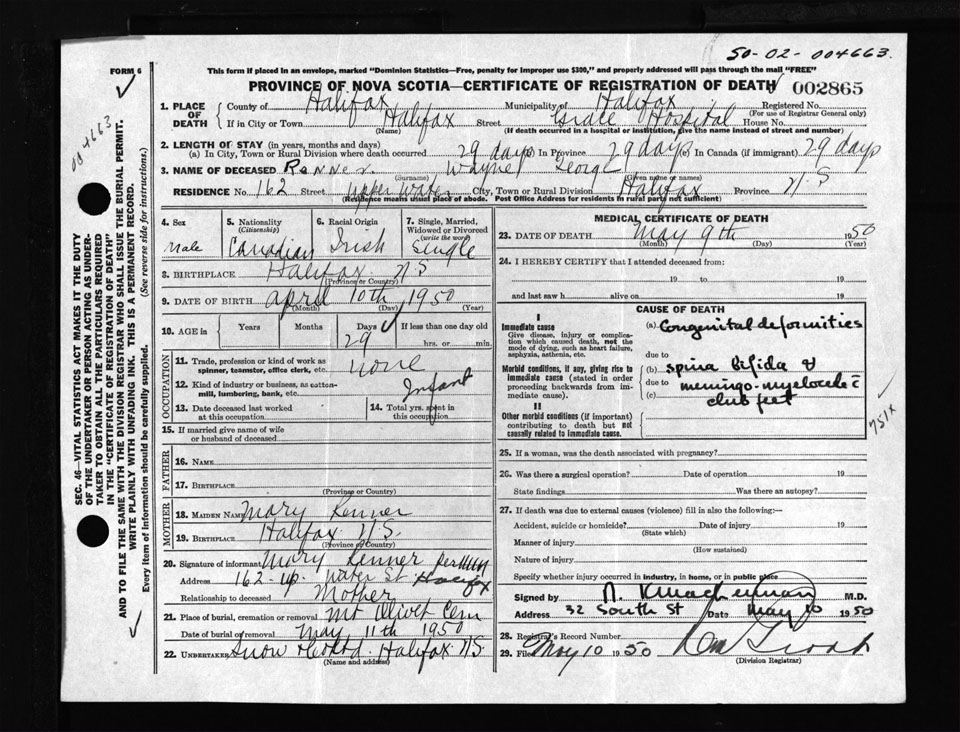 50-02-004663.
FORM 6
This form if placed in an envelope, marked "Dominion Statistics—Free, penalty for improper use $300," and properly addressed will pass through the mail "FREE"
PROVINCE OF NOVA SCOTIA—CERTIFICATE OF REGISTRATION OF DEATH 002865
004663
SEC. 46—VITAL STATISTICS ACT MAKES IT THE DUTY
OF THE UNDERTAKER OR PERSON ACTING AS UNDER-
TAKER TO OBTAIN ALL THE PARTICULARS REQUIRED
IN THE "CERTIFICATE OF REGISTRATION OF DEATH"
AND TO FILE THE SAME WITH THE DIVISION REGISTRAR WHO SHALL ISSUE THE BURIAL PERMIT.
WRITE PLAINLY WITH UNFADING INK. THIS IS A PERMANENT RECORD.
Every item of information should be carefully supplied. (See reverse side for instructions.)
1. PLACE OF DEATH
County of Halifax Municipality of Halifax Registered No.
(For use of Registrar General only)
If in City or Town Halifax Street Grace Hospital House No.
(Name) (If death occurred in a hospital or institution, give the name instead of street and number)
2. LENGTH OF STAY (in years, months and days)
(a) In City, Town or Rural Division where death occurred 29 days In Province 29 days (c) In Canada (if immigrant) 29 days
3. NAME OF DECEASED Renner Wayne George
(Surname) (Given name or names)
RESIDENCE No. 162 Street Upper Water City, Town or Rural Division Halifax Province N.S
(Residence means usual place of abode. Post Office Address for residents in rural parts not sufficient)
4. Sex
Male
5. Nationality
(Citizenship)
Canadian
6. Racial Origin
Irish
7. Single, Married,
Widowed or Divorced
(write the word)
Single
8. BIRTHPLACE Halifax N.S
(Province or Country)
9. DATE OF BIRTH April 10th, 1950
(Month) (Day) (Year)
10. AGE in Years Months Days If less than one day old
29 hrs. or min.
OCCUPATION
11. Trade, profession or kind of work as
spinner, teamster, office clerk, etc. none
12. Kind of industry or business, as cotton-
mill, lumbering, bank, etc. Infant
13. Date deceased last worked
at this occupation
14. Total yrs. spent in
this occupation
15. If married give name of wife
or husband of deceased
FATHER
16. NAME
17. BIRTHPLACE
(Province or Country)
MOTHER
18. MAIDEN NAME Mary Renner
19. BIRTHPLACE Halifax N.S.
(Province or Country)
20. Signature of informant Mary Renner per
Address 162 up. Water St Halifax
Relationship to deceased Mother
21. Place of burial, cremation or removal Mt Olivet Cem
Date of burial or removal May 11th 1950
22. UNDERTAKER Snow & Co Ltd. Halifax N.S.
(Name and address)
MEDICAL CERTIFICATE OF DEATH
23. DATE OF DEATH May 9th 1950
(Month) (Day) (Year)
24. I HEREBY CERTIFY that I attended deceased from:
19 to 19
and last saw h alive on 19
CAUSE OF DEATH
I
Immediate cause
Give disease, injury or complica-
tion which caused death, not the
mode of dying, such as heart failure,
asphyxia, asthenia, etc.
(a) Congenital deformities
due to
Morbid conditions, if any, giving rise to
immediate cause (stated in order
proceeding backwards from im-
mediate cause).
(b) spina bifida &
due to meningo-myelocele c̄
(c) club feet
II
Other morbid conditions (if important)
contributing to death but not
causally related to immediate cause.
751X
25. If a woman, was the death associated with pregnancy?
26. Was there a surgical operation? Date of operation 19
State findings Was there an autopsy?
27. If death was due to external causes (violence) fill in also the following:—
Accident, suicide or homicide? Date of injury 19
(State which)
Manner of injury
(How sustained)
Nature of injury
Specify whether injury occurred in industry, in home, or in public place
Signed by N. M.D.
Address 32 South St Date May 10 1950
28. Registrar's Record Number
29. Filed May 10 1950
(Division Registrar)